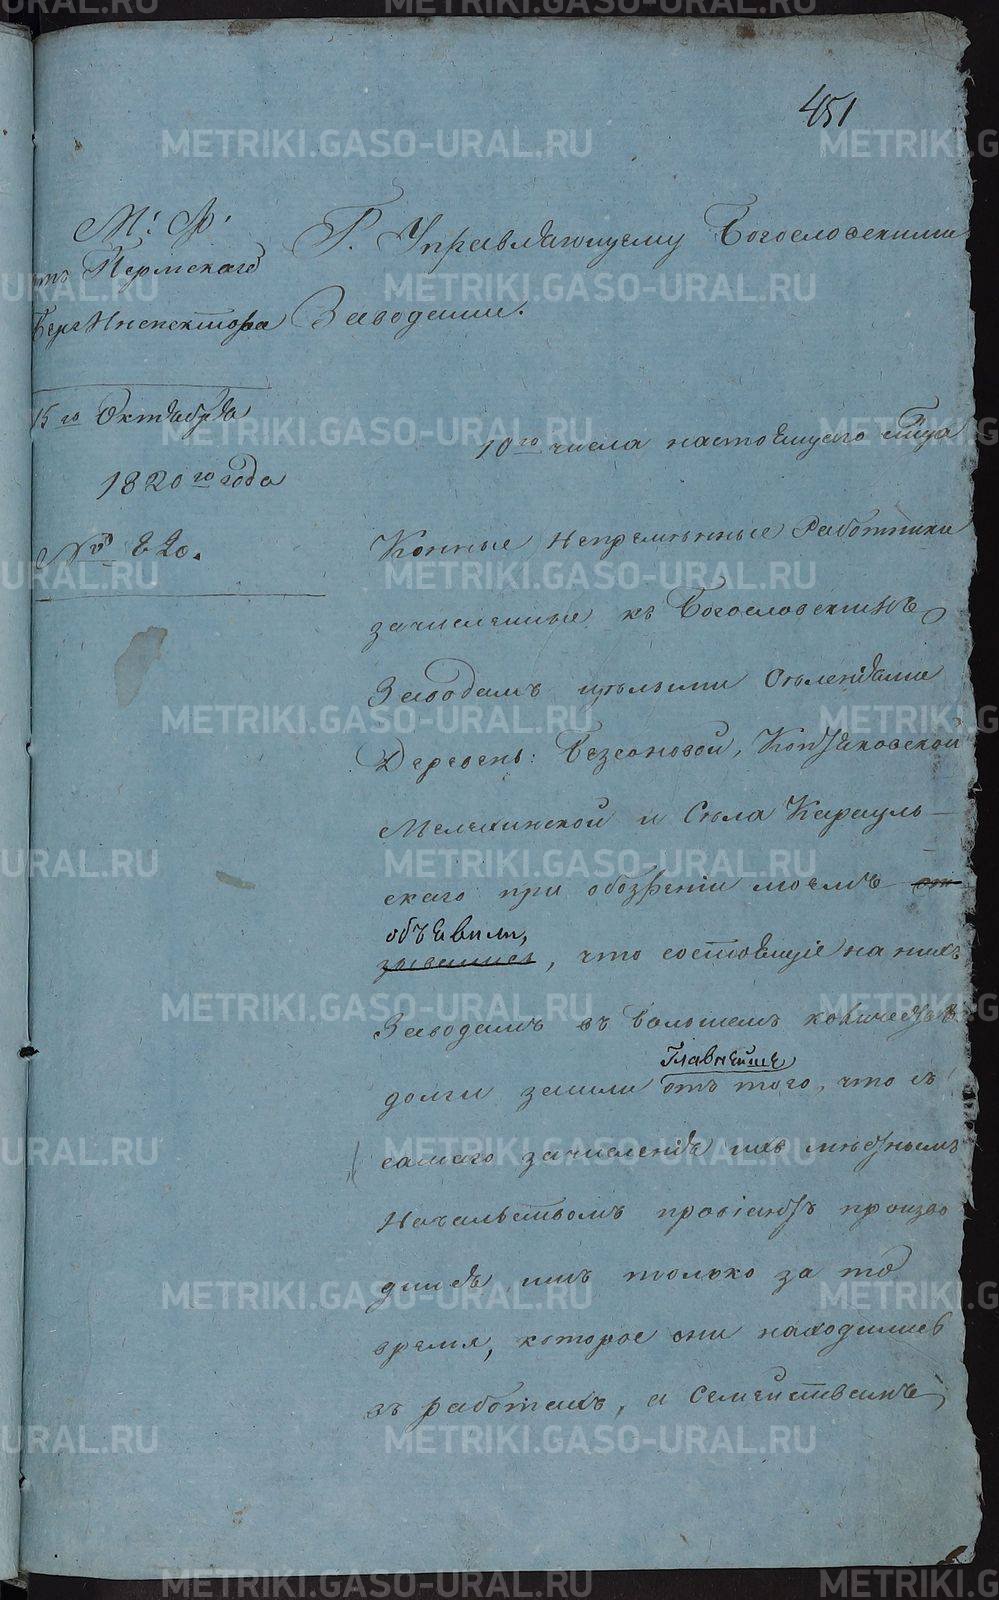 451
М: Ф:
отъ Пермскаго
БергИнспектора
15го Октября
1820го года
№ 220.
Г. Управляющему Богословскими
Заводами.
10го числа настоящего м̃ца
Конные Непременные Работники
зачисленные къ Богословскимъ
Заводамъ целыми Селениями
Деревень: Безсоновой, Коптяковской
Мелехинской и Села Карауль-
скаго при обозрении моемъ
объявили,
, что состоящие на нихъ
Заводамъ въ большемъ количестве
Главнейше
долги зашли отъ того, что съ
самаго зачисления ихъ местнымъ
Начальствомъ провіантъ произво
дился имъ только за то
время, которое они находились
въ работахъ, а Семействамъ
METRIKI.GASO-URAL.RU